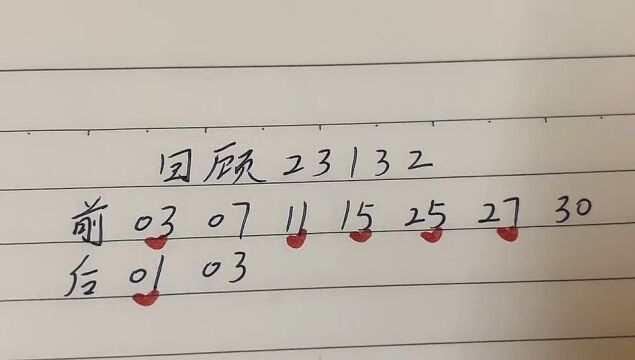 回顾23132
前 03 07 11 15 25 27 30
后 01 03